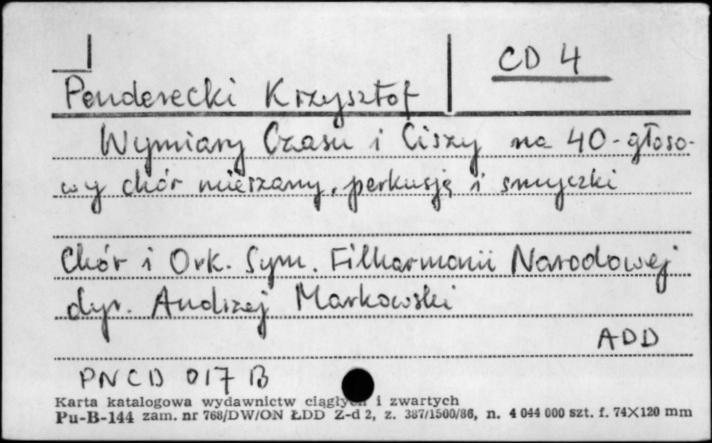 CD 4
Penderecki Krzysztof
Wymiary Czasu i Ciszy na 40-głoso-
wy chór mieszany, perkusję i smyczki
Chór i Ork. Sym. Filharmonii Narodowej
dyr. Andrzej Markowski
ADD
PNCD 017 B
Karta katalogowa wydawnictw ciągłych i zwartych
Pu-B-144 zam. nr 768/DW/ON ŁDD Z-d 2, z. 387/1500/86, n. 4 044 000 szt. f. 74×120 mm